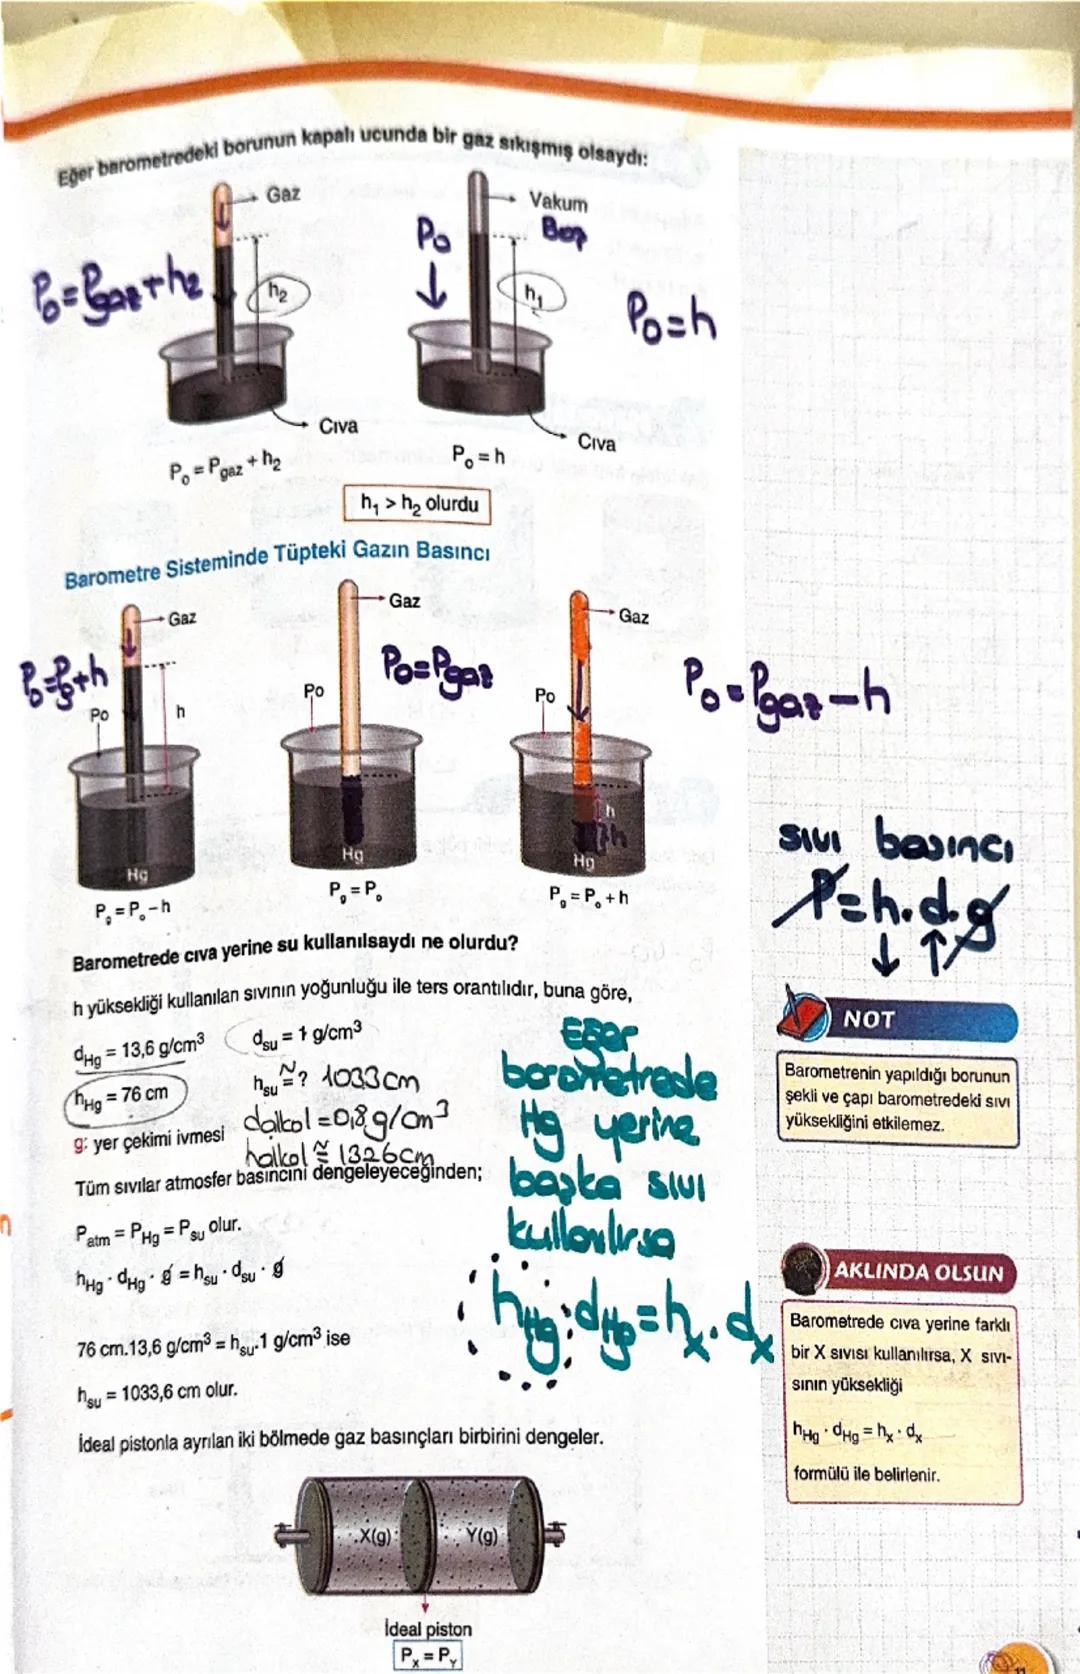 Eğer barometredeki borunun kapalı ucunda bir gaz sıkışmış olsaydı:
Gaz
Vakum
Po
Boş
Po=Pgaz+h2
h2
h1
Po=h
Cıva
Cıva
Po = Pgaz + h2
Po = h
h1 > h2 olurdu
Barometre Sisteminde Tüpteki Gazın Basıncı
Gaz
Gaz
Gaz
Po=Pg+h
Po=Pgaz
Po=Pgaz-h
Po
h
Po
Po
h
h
Hg
Hg
Hg
Pg = Po - h
Pg = Po
Pg = Po + h
sıvı basıncı
P=h.d.g
↓ ↑
Barometrede cıva yerine su kullanılsaydı ne olurdu?
h yüksekliği kullanılan sıvının yoğunluğu ile ters orantılıdır, buna göre,
dHg = 13,6 g/cm3
dsu = 1 g/cm3
hHg = 76 cm
hsu ≅ ? 1033cm
g: yer çekimi ivmesi
dalkol = 0,8 g/cm3
halkol ≅ 1326cm
Tüm sıvılar atmosfer basıncını dengeleyeceğinden;
Patm = PHg = Psu olur.
hHg · dHg · g = hsu · dsu · g
76 cm.13,6 g/cm3 = hsu.1 g/cm3 ise
hsu = 1033,6 cm olur.
Eğer
barometrede
Hg yerine
başka sıvı
kullanılırsa
hHg.dHg=hx.dx
NOT
Barometrenin yapıldığı borunun
şekli ve çapı barometredeki sıvı
yüksekliğini etkilemez.
AKLINDA OLSUN
Barometrede cıva yerine farklı
bir X sıvısı kullanılırsa, X sıvı-
sının yüksekliği
hHg · dHg = hx · dx
formülü ile belirlenir.
İdeal pistonla ayrılan iki bölmede gaz basınçları birbirini dengeler.
X(g)
Y(g)
İdeal piston
PX = PY